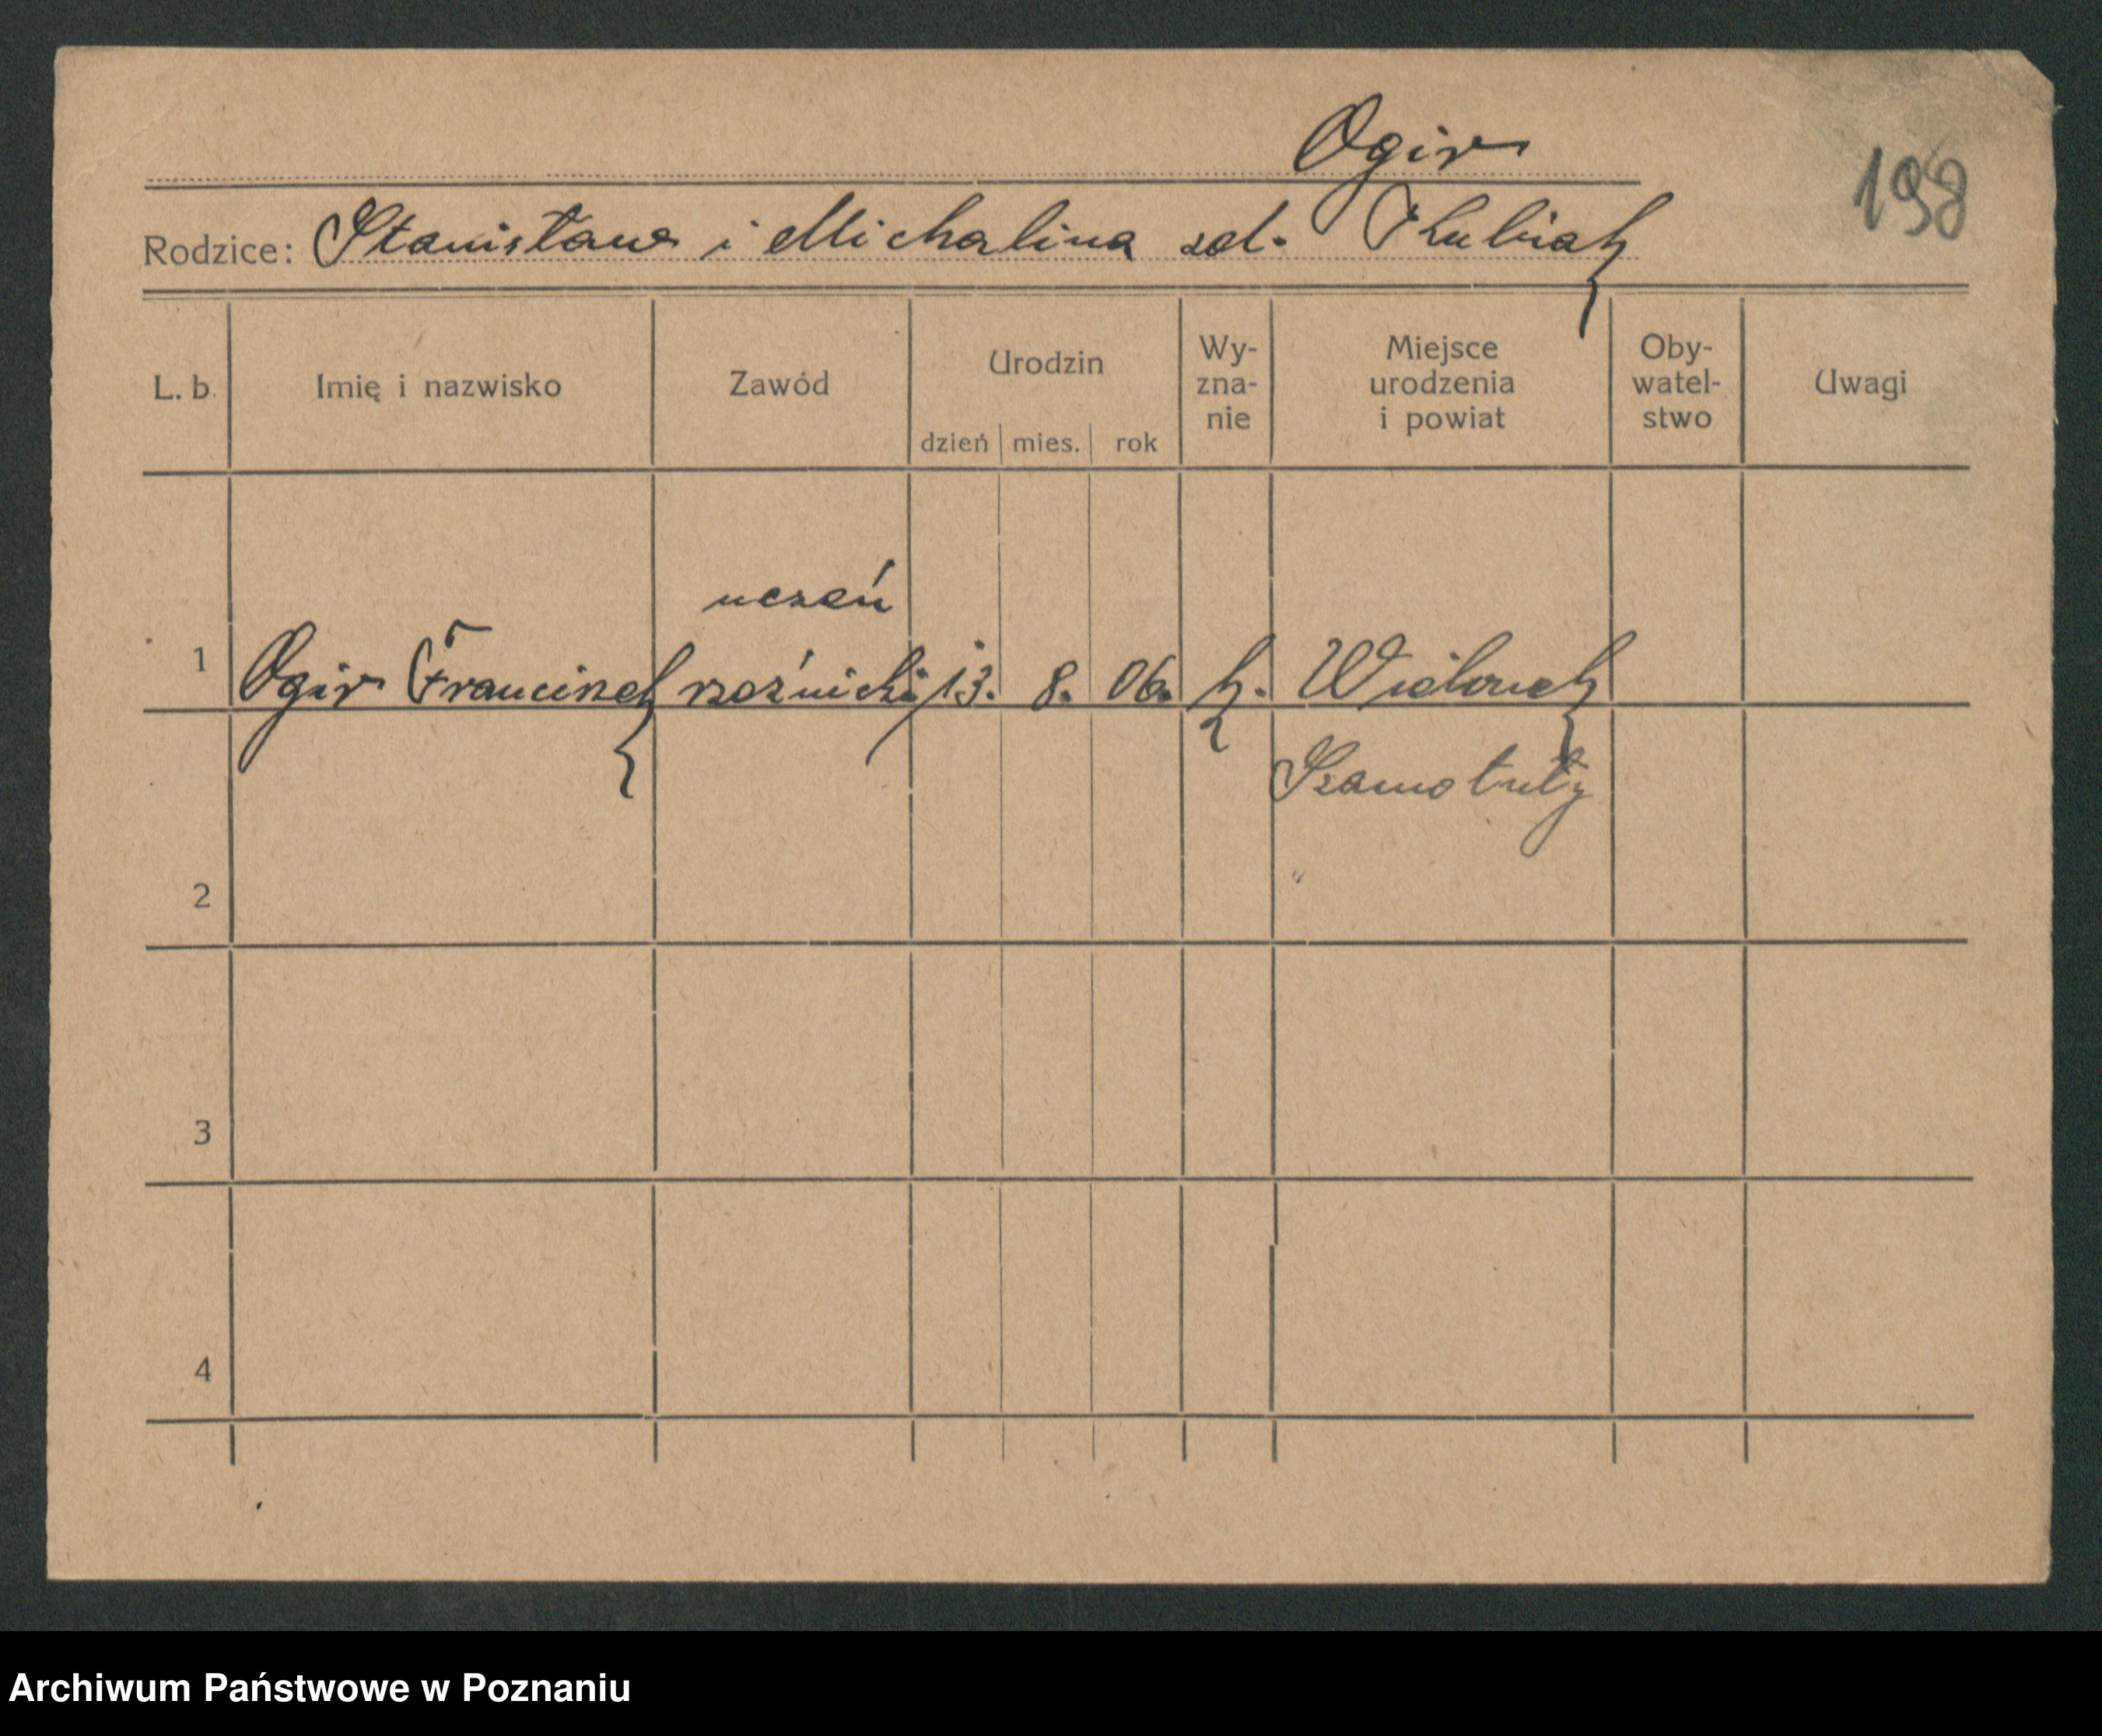 Ogir
198
Rodzice: Stanisław i Michalina zd. Kubiak
L. b. Imię i nazwisko Zawód Urodzin dzień mies. rok Wy-zna-nie Miejsce urodzenia i powiat Oby-watel-stwo Uwagi
uczeń
1 Ogir Franciszek rzeźnicki 13. 8. 06. k. Wielonek
Szamotuły
2
3
4
Archiwum Państwowe w Poznaniu